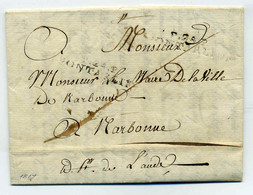 Monsieur
Monsieur Le Maire De la Ville
De Narbonne
à Narbonne
dt. de L'aude